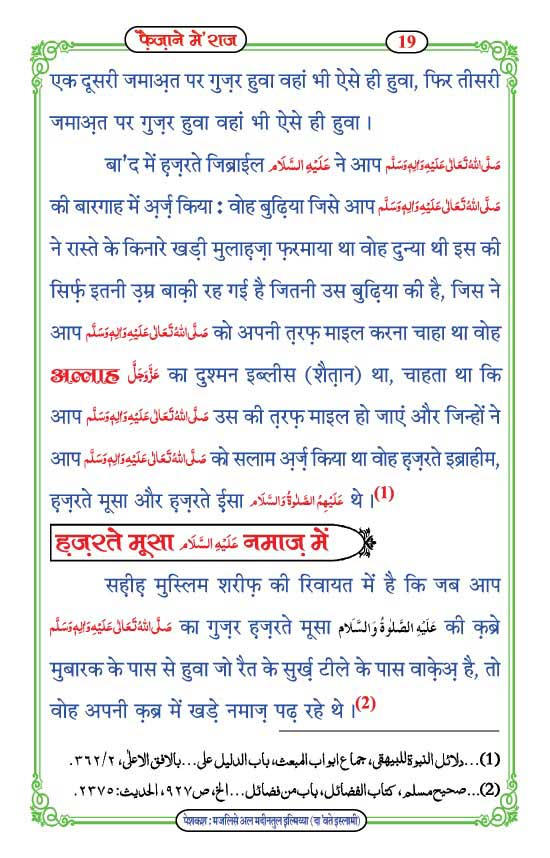 फ़ैज़ाने मे'राज
19
एक दूसरी जमाअ़त पर गुज़र हुवा वहां भी ऐसे ही हुवा, फिर तीसरी
जमाअ़त पर गुज़र हुवा वहां भी ऐसे ही हुवा ।
बा'द में ह़ज़रते जिब्राईल عَلَيْهِ السَّلَام ने आप صَلَّى اللّٰهُ تَعَالٰى عَلَيْهِ وَاٰلِهٖ وَسَلَّم
की बारगाह में अ़र्ज़ किया : वोह बुढ़िया जिसे आप صَلَّى اللّٰهُ تَعَالٰى عَلَيْهِ وَاٰلِهٖ وَسَلَّم
ने रास्ते के किनारे खड़ी मुलाह़ज़ा फ़रमाया था वोह दुन्या थी इस की
सिर्फ़ इतनी उ़म्र बाक़ी रह गई है जितनी उस बुढ़िया की है, जिस ने
आप صَلَّى اللّٰهُ تَعَالٰى عَلَيْهِ وَاٰلِهٖ وَسَلَّم को अपनी त़रफ़ माइल करना चाहा था वोह
अल्लाह عَزَّوَجَلَّ का दुश्मन इब्लीस (शैत़ान) था, चाहता था कि
आप صَلَّى اللّٰهُ تَعَالٰى عَلَيْهِ وَاٰلِهٖ وَسَلَّم उस की त़रफ़ माइल हो जाएं और जिन्हों ने
आप صَلَّى اللّٰهُ تَعَالٰى عَلَيْهِ وَاٰلِهٖ وَسَلَّم को सलाम अ़र्ज़ किया था वोह ह़ज़रते इब्राहीम,
ह़ज़रते मूसा और ह़ज़रते ई़सा عَلَيْهِمُ الصَّلٰوةُ وَالسَّلَام थे ।(1)
ह़ज़रते मूसा عَلَيْهِ السَّلَام नमाज़ में
सह़ीह़ मुस्लिम शरीफ़ की रिवायत में है कि जब आप
صَلَّى اللّٰهُ تَعَالٰى عَلَيْهِ وَاٰلِهٖ وَسَلَّم का गुज़र ह़ज़रते मूसा عَلَيْهِ الصَّلٰوةُ وَالسَّلَام की क़ब्रे
मुबारक के पास से हुवा जो रैत के सुर्ख़ टीले के पास वाके़अ़ है, तो
वोह अपनी क़ब्र में खड़े नमाज़ पढ़ रहे थे ।(2)
(1)...دلائل النبوة للبيهقى، جماع ابواب المبعث، باب الدليل على...بالافق الاعلى، ٣٦٢/٢.
(2)...صحيح مسلم، كتاب الفضائل، باب من فضائل...الخ، ص٩٢٧، الحديث:٢٣٧٥.
पेशकश : मजलिसे अल मदीनतुल इ़ल्मिय्या (दा'वते इस्लामी)